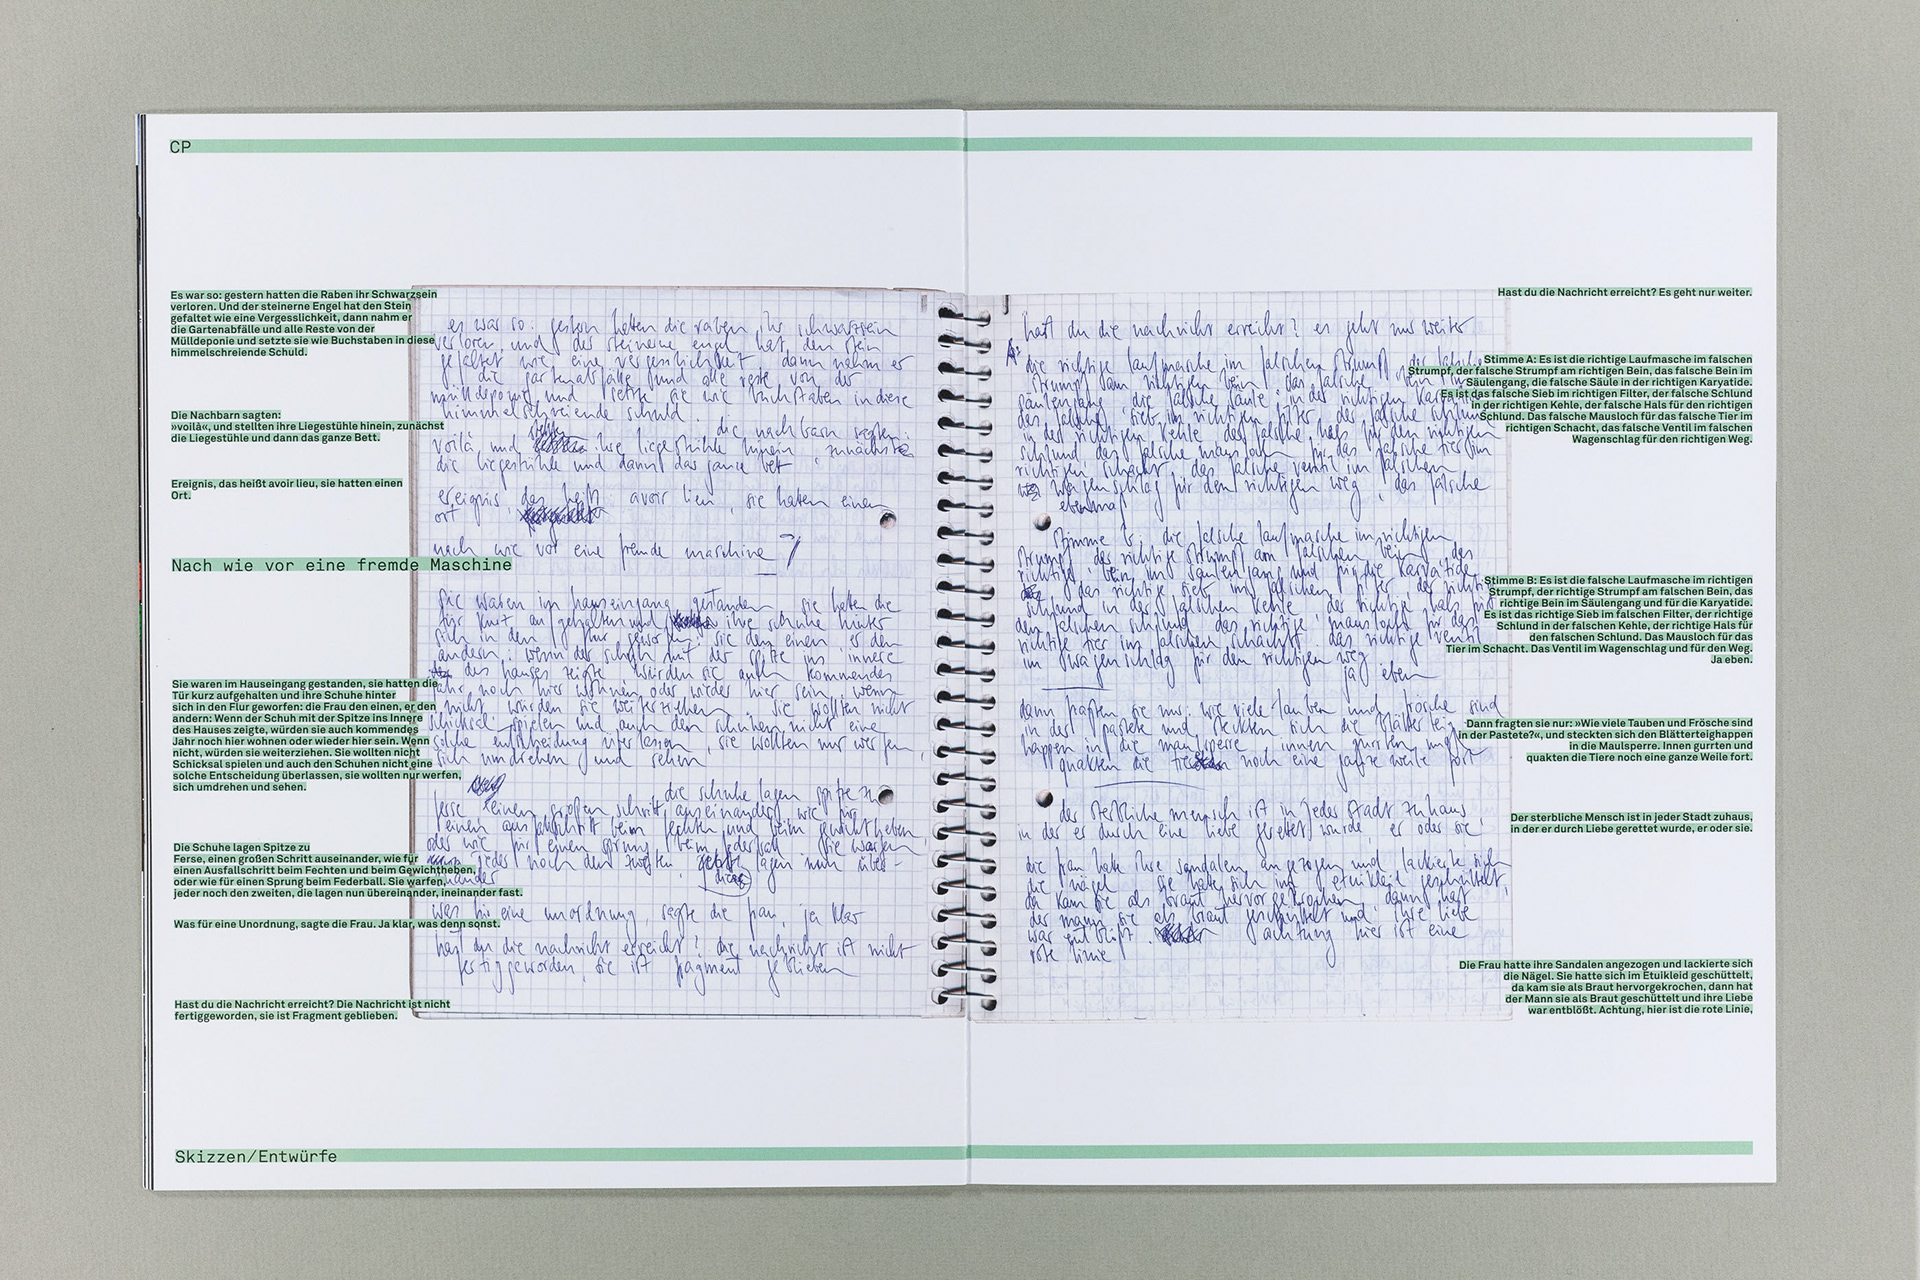 CP
Es war so: gestern hatten die Raben ihr Schwarzsein
verloren. Und der steinerne Engel hat den Stein
gefaltet wie eine Vergesslichkeit, dann nahm er
die Gartenabfälle und alle Reste von der
Mülldeponie und setzte sie wie Buchstaben in diese
himmelschreiende Schuld.
Die Nachbarn sagten:
»voilà«, und stellten ihre Liegestühle hinein, zunächst
die Liegestühle und dann das ganze Bett.
Ereignis, das heißt avoir lieu, sie hatten einen
Ort.
Nach wie vor eine fremde Maschine
Sie waren im Hauseingang gestanden, sie hatten die
Tür kurz aufgehalten und ihre Schuhe hinter
sich in den Flur geworfen: die Frau den einen, er den
andern: Wenn der Schuh mit der Spitze ins Innere
des Hauses zeigte, würden sie auch kommendes
Jahr noch hier wohnen oder wieder hier sein. Wenn
nicht, würden sie weiterziehen. Sie wollten nicht
Schicksal spielen und auch den Schuhen nicht eine
solche Entscheidung überlassen, sie wollten nur werfen,
sich umdrehen und sehen.
Die Schuhe lagen Spitze zu
Ferse, einen großen Schritt auseinander, wie für
einen Ausfallschritt beim Fechten und beim Gewichtheben,
oder wie für einen Sprung beim Federball. Sie warfen,
jeder noch den zweiten, die lagen nun übereinander, ineinander fast.
Was für eine Unordnung, sagte die Frau. Ja klar, was denn sonst.
Hast du die Nachricht erreicht? Die Nachricht ist nicht
fertiggeworden, sie ist Fragment geblieben.
es war so. gestern hatten die raben ihr schwarzsein
verloren. und der steinerne engel hat den stein
gefaltet wie eine vergesslichkeit dann nahm er
die gartenabfälle und alle reste von der
mülldeponie und setzte sie wie buchstaben in diese
himmelschreiende schuld. die nachbarn sagten:
voilà und stellten ihre liegestühle hinein, zunächst
die liegestühle und dann das ganze bett
ereignis, das heißt: avoir lieu, sie hatten einen
ort
nach wie vor eine fremde maschine
sie waren im hauseingang gestanden sie hatten die
tür kurz aufgehalten und ihre schuhe hinter
sich in den flur geworfen: sie den einen, er den
andern: wenn der schuh mit der spitze ins innere
des hauses zeigte würden sie auch kommendes
jahr noch hier wohnen oder wieder hier sein, wenn
nicht würden sie weiterziehen. sie wollten nicht
schicksal spielen und auch den schuhen nicht eine
solche entscheidung überlassen, sie wollten nur werfen,
sich umdrehen und sehen
die schuhe lagen spitze zu
ferse einen großen schritt auseinander, wie für
einen ausfallschritt beim fechten und beim gewichtheben
oder wie für einen sprung beim federball. sie warfen
jeder noch den zweiten, lagen nun über-
einander
diese
was für eine unordnung, sagte die frau, ja klar
hast du die nachricht erreicht? die nachricht ist nicht
fertiggeworden, sie ist fragment geblieben
hast du die nachricht erreicht? es geht nur weiter
A:
die richtige laufmasche im falschen strumpf, der falsche
strumpf am richtigen bein, das falsche bein im
säulengang die falsche säule in der richtigen karyatide
das falsche sieb im richtigen filter der falsche schlund
in der richtigen kehle der falsche hals für den richtigen
schlund das falsche mausloch für das falsche tier im
richtigen schacht, das falsche ventil im falschen
wagenschlag für den richtigen weg, das falsche
ebenmaß
stimme b: die falsche laufmasche im richtigen
strumpf der richtige strumpf am falschen bein das
richtige bein im säulengang und für die karyatide
das richtige sieb im falschen filter, der richtige
schlund in der falschen kehle der richtige hals für
den falschen schlund das richtige mausloch für das
richtige tier im falschen schacht das richtige ventil
im wagenschlag für den richtigen weg
ja eben
dann fragten sie nur: wie viele tauben und frösche sind
in der pastete und steckten sich die blätterteig-
happen in die maulsperre, innen gurrten und
quakten die tiere noch eine ganze weile fort
der sterbliche mensch ist in jeder stadt zuhaus
in der er durch eine liebe gerettet wurde, er oder sie
die frau hatte ihre sandalen angezogen und lackierte sich
die nägel. sie hatte sich im etuikleid geschüttelt,
da kam sie als braut hervorgekrochen, dann hat
der mann sie als braut geschüttelt und ihre liebe
war entblößt. achtung hier ist eine
rote linie
Hast du die Nachricht erreicht? Es geht nur weiter.
Stimme A: Es ist die richtige Laufmasche im falschen
Strumpf, der falsche Strumpf am richtigen Bein, das falsche Bein im
Säulengang, die falsche Säule in der richtigen Karyatide.
Es ist das falsche Sieb im richtigen Filter, der falsche Schlund
in der richtigen Kehle, der falsche Hals für den richtigen
Schlund. Das falsche Mausloch für das falsche Tier im
richtigen Schacht, das falsche Ventil im falschen
Wagenschlag für den richtigen Weg.
Stimme B: Es ist die falsche Laufmasche im richtigen
Strumpf, der richtige Strumpf am falschen Bein, das
richtige Bein im Säulengang und für die Karyatide.
Es ist das richtige Sieb im falschen Filter, der richtige
Schlund in der falschen Kehle, der richtige Hals für
den falschen Schlund. Das Mausloch für das
Tier im Schacht. Das Ventil im Wagenschlag und für den Weg.
Ja eben.
Dann fragten sie nur: »Wie viele Tauben und Frösche sind
in der Pastete?«, und steckten sich den Blätterteighappen
in die Maulsperre. Innen gurrten und
quakten die Tiere noch eine ganze Weile fort.
Der sterbliche Mensch ist in jeder Stadt zuhaus,
in der er durch Liebe gerettet wurde, er oder sie.
Die Frau hatte ihre Sandalen angezogen und lackierte sich
die Nägel. Sie hatte sich im Etuikleid geschüttelt,
da kam sie als Braut hervorgekrochen, dann hat
der Mann sie als Braut geschüttelt und ihre Liebe
war entblößt. Achtung, hier ist die rote Linie,
Skizzen/Entwürfe